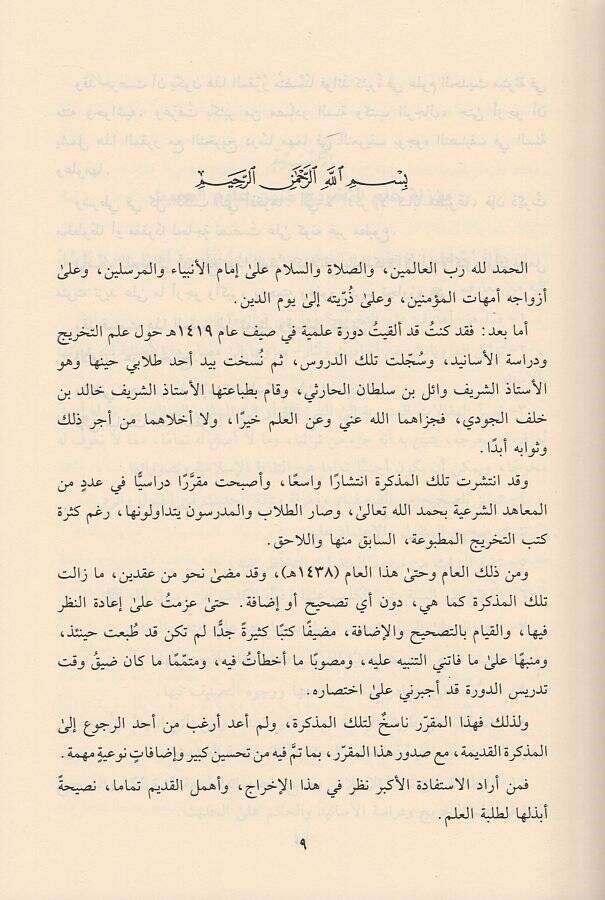 بِسْمِ اللَّهِ الرَّحْمَٰنِ الرَّحِيمِ
الحمد لله رب العالمين، والصلاة والسلام علىٰ إمام الأنبياء والمرسلين، وعلىٰ
أزواجه أمهات المؤمنين، وعلىٰ ذُرّيته إلىٰ يوم الدين.
أما بعد: فقد كنتُ قد ألقيتُ دورة علمية في صيف عام ١٤١٩هـ حول علم التخريج
ودراسة الأسانيد، وسُجّلت تلك الدروس، ثم نُسخت بيد أحد طلابي حينها وهو
الأستاذ الشريف وائل بن سلطان الحارثي، وقام بطباعتها الأستاذ الشريف خالد بن
خلف الجودي، فجزاهما الله عني وعن العلم خيرًا، ولا أخلاهما من أجر ذلك
وثوابه أبدًا.
وقد انتشرت تلك المذكرة انتشارًا واسعًا، وأصبحت مقرَّرًا دراسيًّا في عددٍ من
المعاهد الشرعية بحمد الله تعالىٰ، وصار الطلاب والمدرسون يتداولونها، رغم كثرة
كتب التخريج المطبوعة، السابق منها واللاحق.
ومن ذلك العام وحتىٰ هذا العام (١٤٣٨هـ)، وقد مضىٰ نحو من عقدين، ما زالت
تلك المذكرة كما هي، دون أي تصحيح أو إضافة. حتىٰ عزمتُ علىٰ إعادة النظر
فيها، والقيام بالتصحيح والإضافة، مضيفًا كتبًا كثيرةً جدًّا لم تكن قد طُبعت حينئذ،
ومنبهًا علىٰ ما فاتني التنبيه عليه، ومصوبًا ما أخطأتُ فيه، ومتمّمًا ما كان ضيقُ وقت
تدريس الدورة قد أجبرني علىٰ اختصاره.
ولذلك فهذا المقرّر ناسخٌ لتلك المذكرة، ولم أعد أرغب من أحد الرجوع إلىٰ
المذكرة القديمة، مع صدور هذا المقرّر، بما تمَّ فيه من تحسين كبير وإضافاتٍ نوعيةٍ مهمة.
فمن أراد الاستفادة الأكبر نظر في هذا الإخراج، وأهمل القديم تماما، نصيحةً
أبذلها لطلبة العلم.
٩